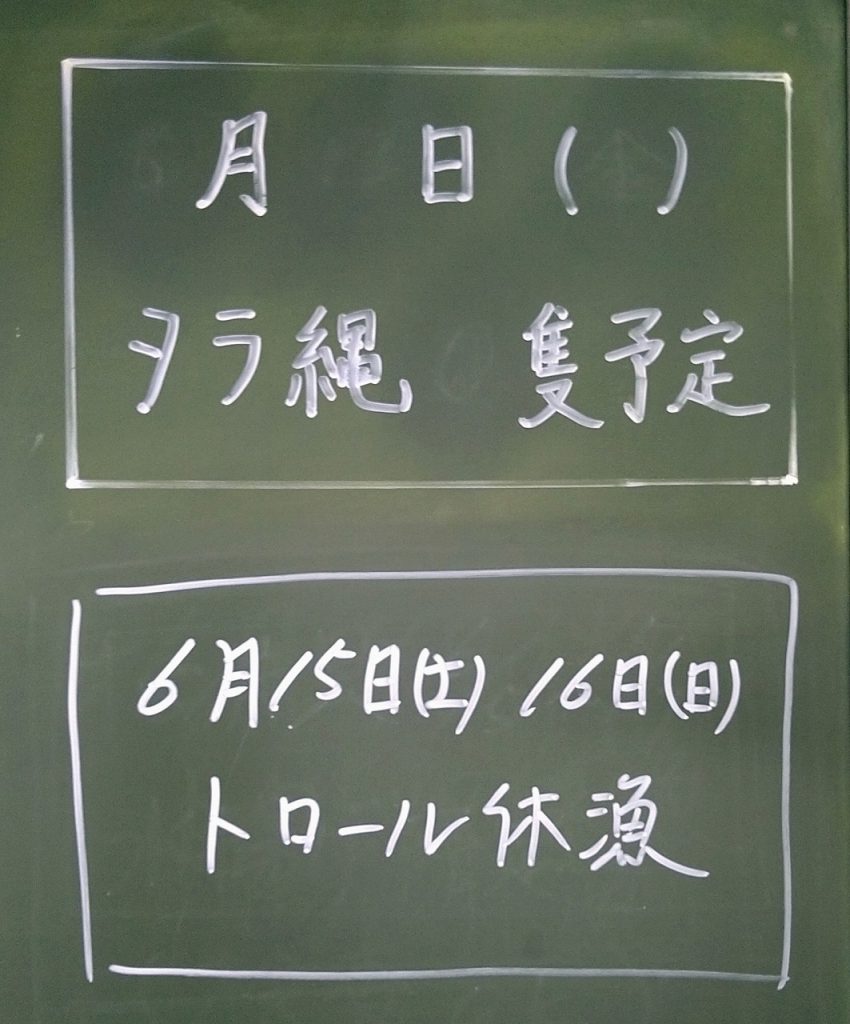 月　日（　）
タラ縄　隻予定
6月15日(土) 16日(日)
トロール休漁